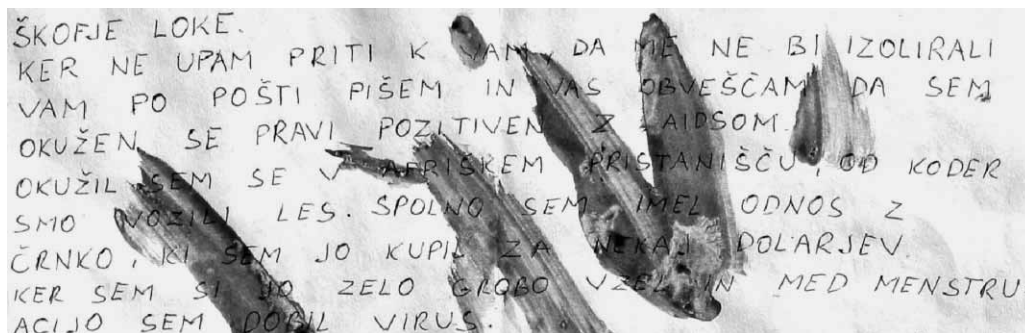 ŠKOFJE LOKE.
KER NE UPAM PRITI K VAM, DA ME NE BI IZOLIRALI
VAM PO POŠTI PIŠEM IN VAS OBVEŠČAM DA SEM
OKUŽEN SE PRAVI POZITIVEN Z AIDSOM.
OKUŽIL SEM SE V AFRIŠKEM PRISTANIŠČU, OD KODER
SMO VOZILI LES. SPOLNO SEM IMEL ODNOS Z
ČRNKO, KI SEM JO KUPIL ZA NEKAJ DOLARJEV
KER SEM SI JO ZELO GROBO VZEL IN MED MENSTRU
ACIJO SEM DOBIL VIRUS.